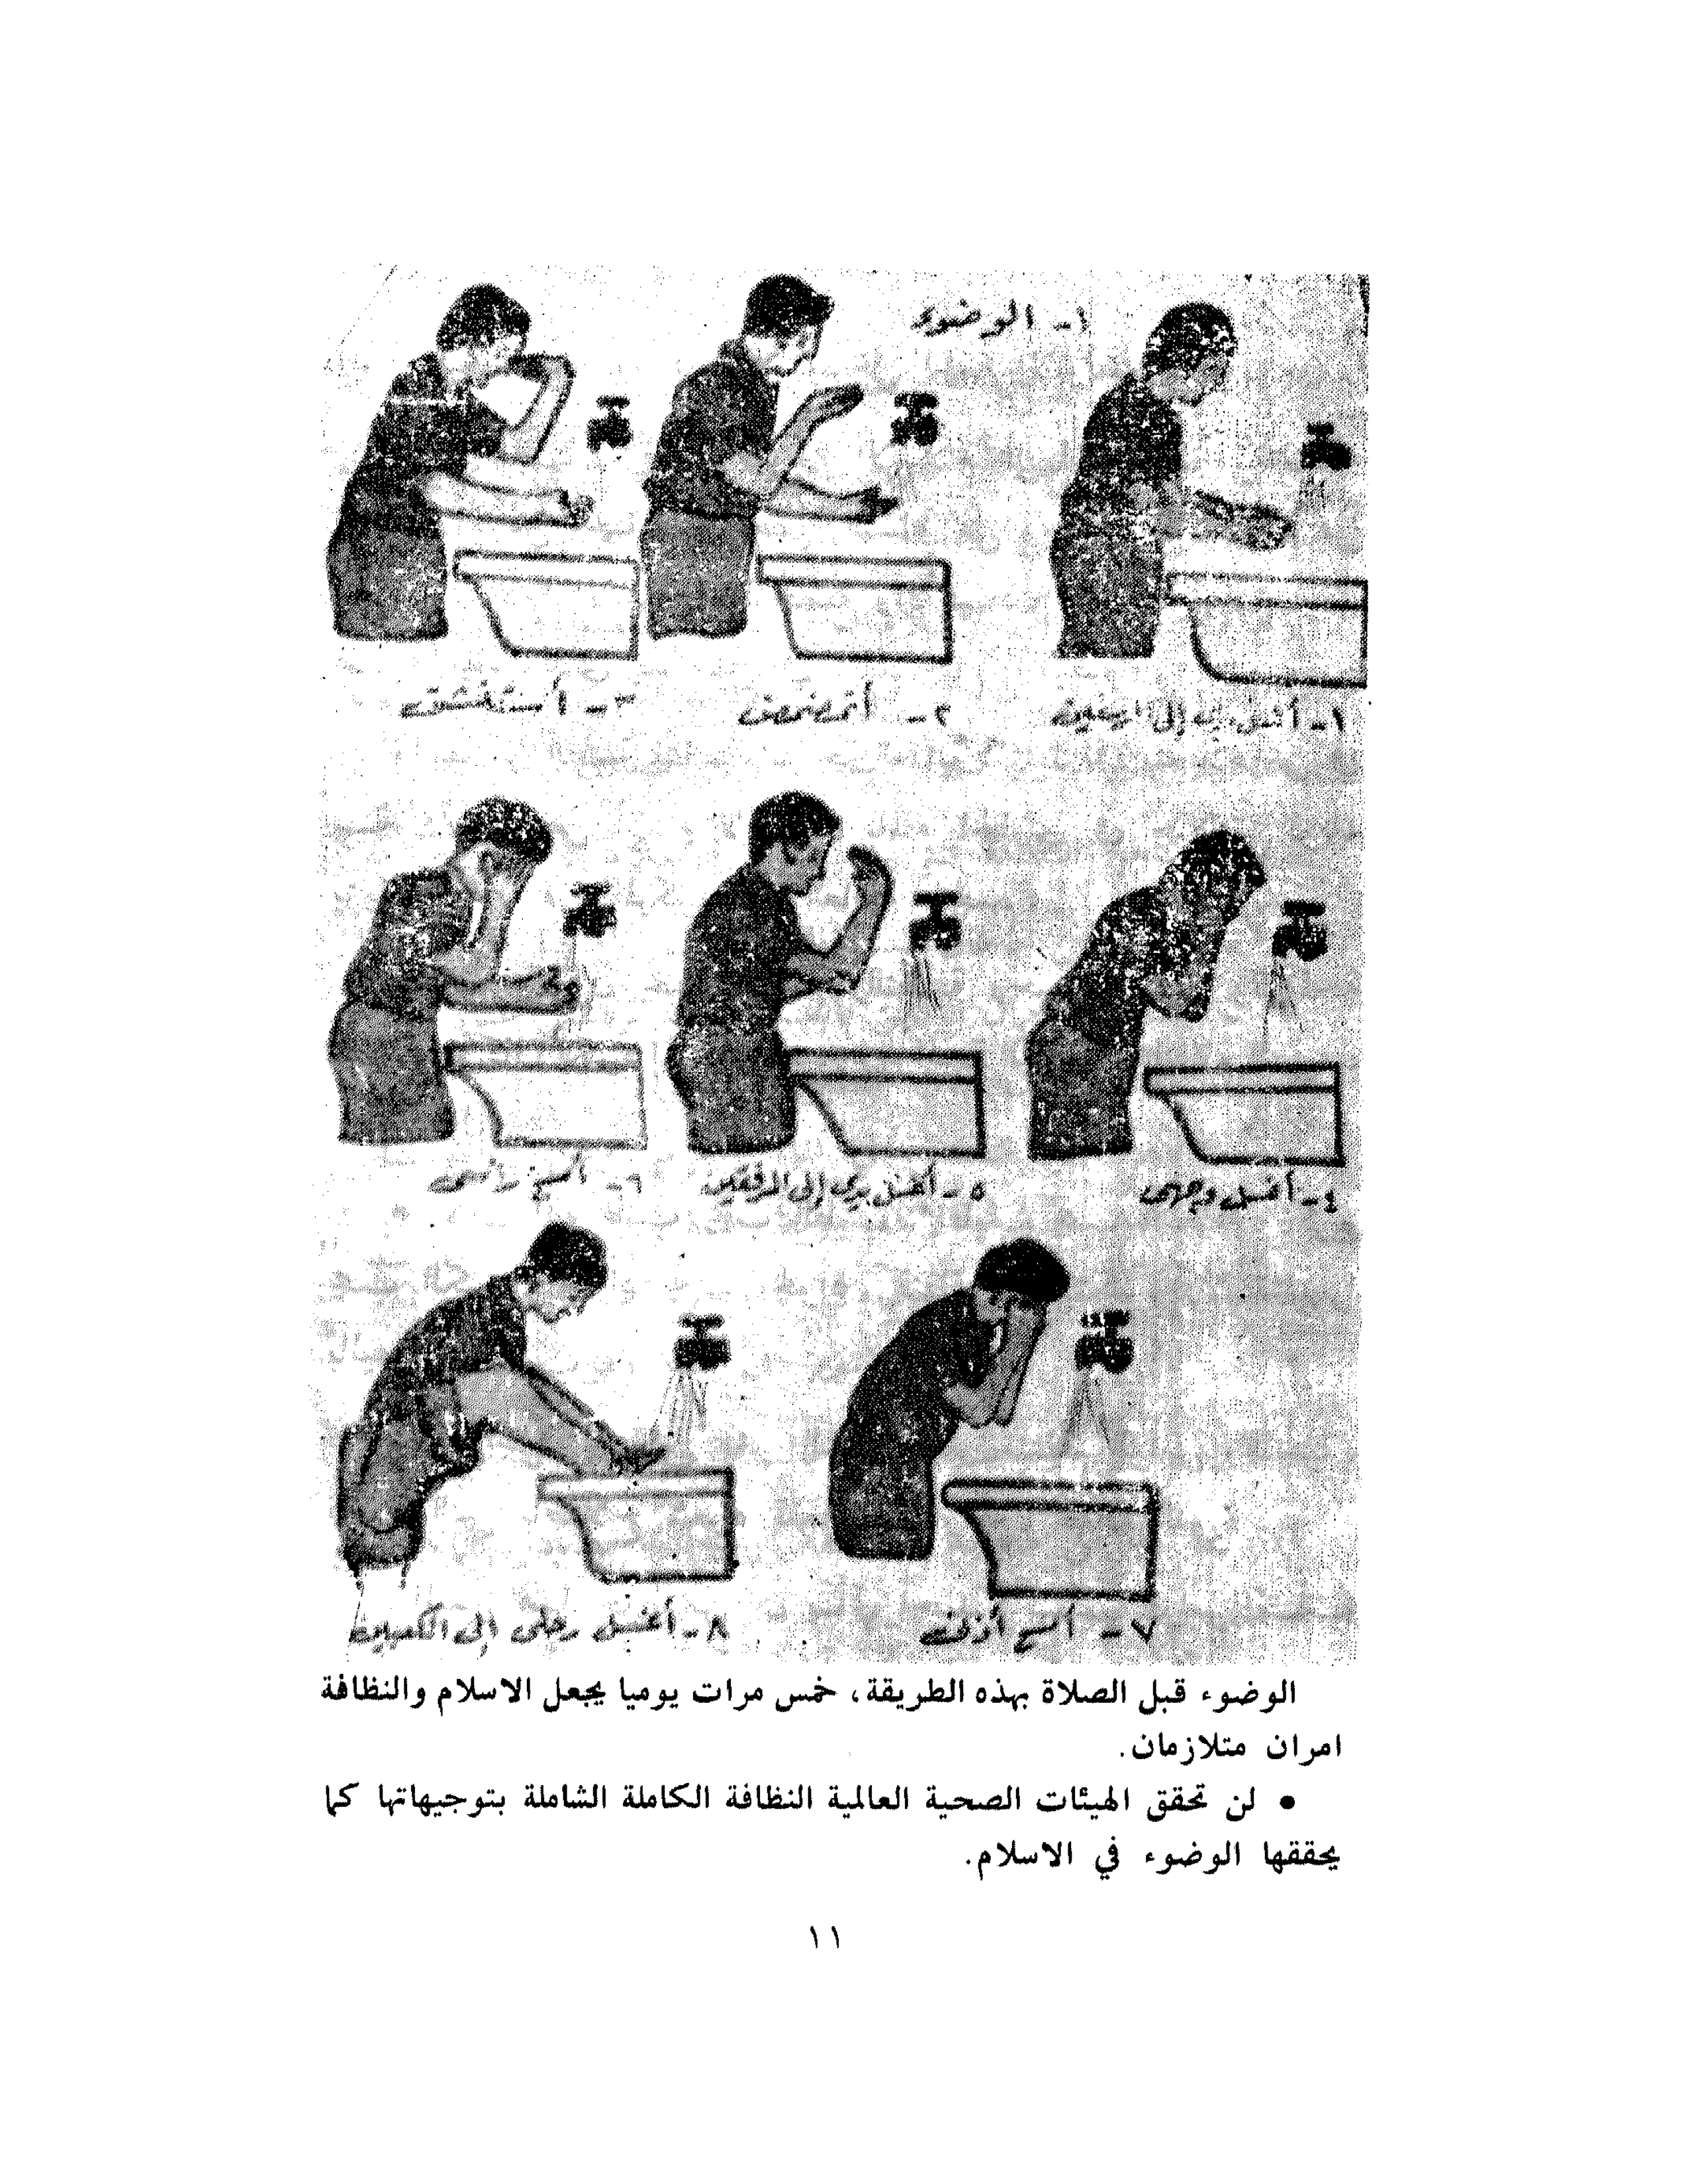 ١- الوضوء
١- أغسل يدي إلى الرسغين
٢- أتمضمض
٣- أستنشق
٤- أغسل وجهي
٥- أغسل يدي إلى المرفقين
٦- أمسح رأسي
٧- أمسح أذني
٨- أغسل رجلي إلى الكعبين
الوضوء قبل الصلاة بهذه الطريقة، خمس مرات يوميا يجعل الاسلام والنظافة
امران متلازمان.
• لن تحقق الهيئات الصحية العالمية النظافة الكاملة الشاملة بتوجيهاتها كما
يحققها الوضوء في الاسلام.
١١